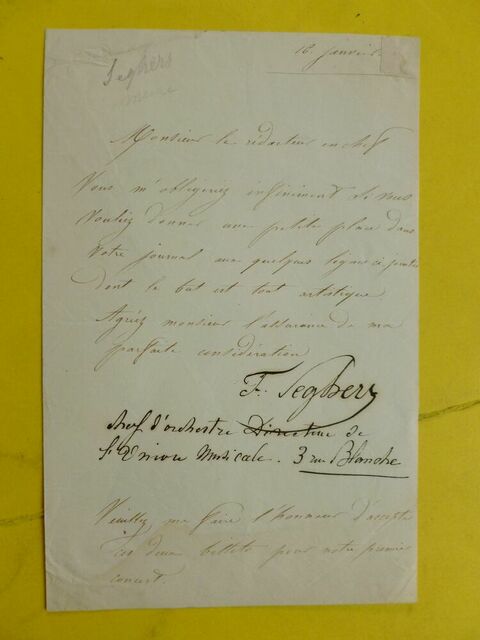 Seghers
18 janvier
Monsieur le rédacteur en chef
Vous m'obligeriez infiniment si vous
vouliez donner une petite place dans
votre journal aux quelques lignes ci jointes
dont le but est tout artistique
Agréez monsieur l'assurance de ma
parfaite considération
F. Seghers
chef d'orchestre Directeur de
l'Union Musicale. 3 rue Blanche
Veuillez me faire l'honneur d'accepter
ces deux billets pour notre premier
concert